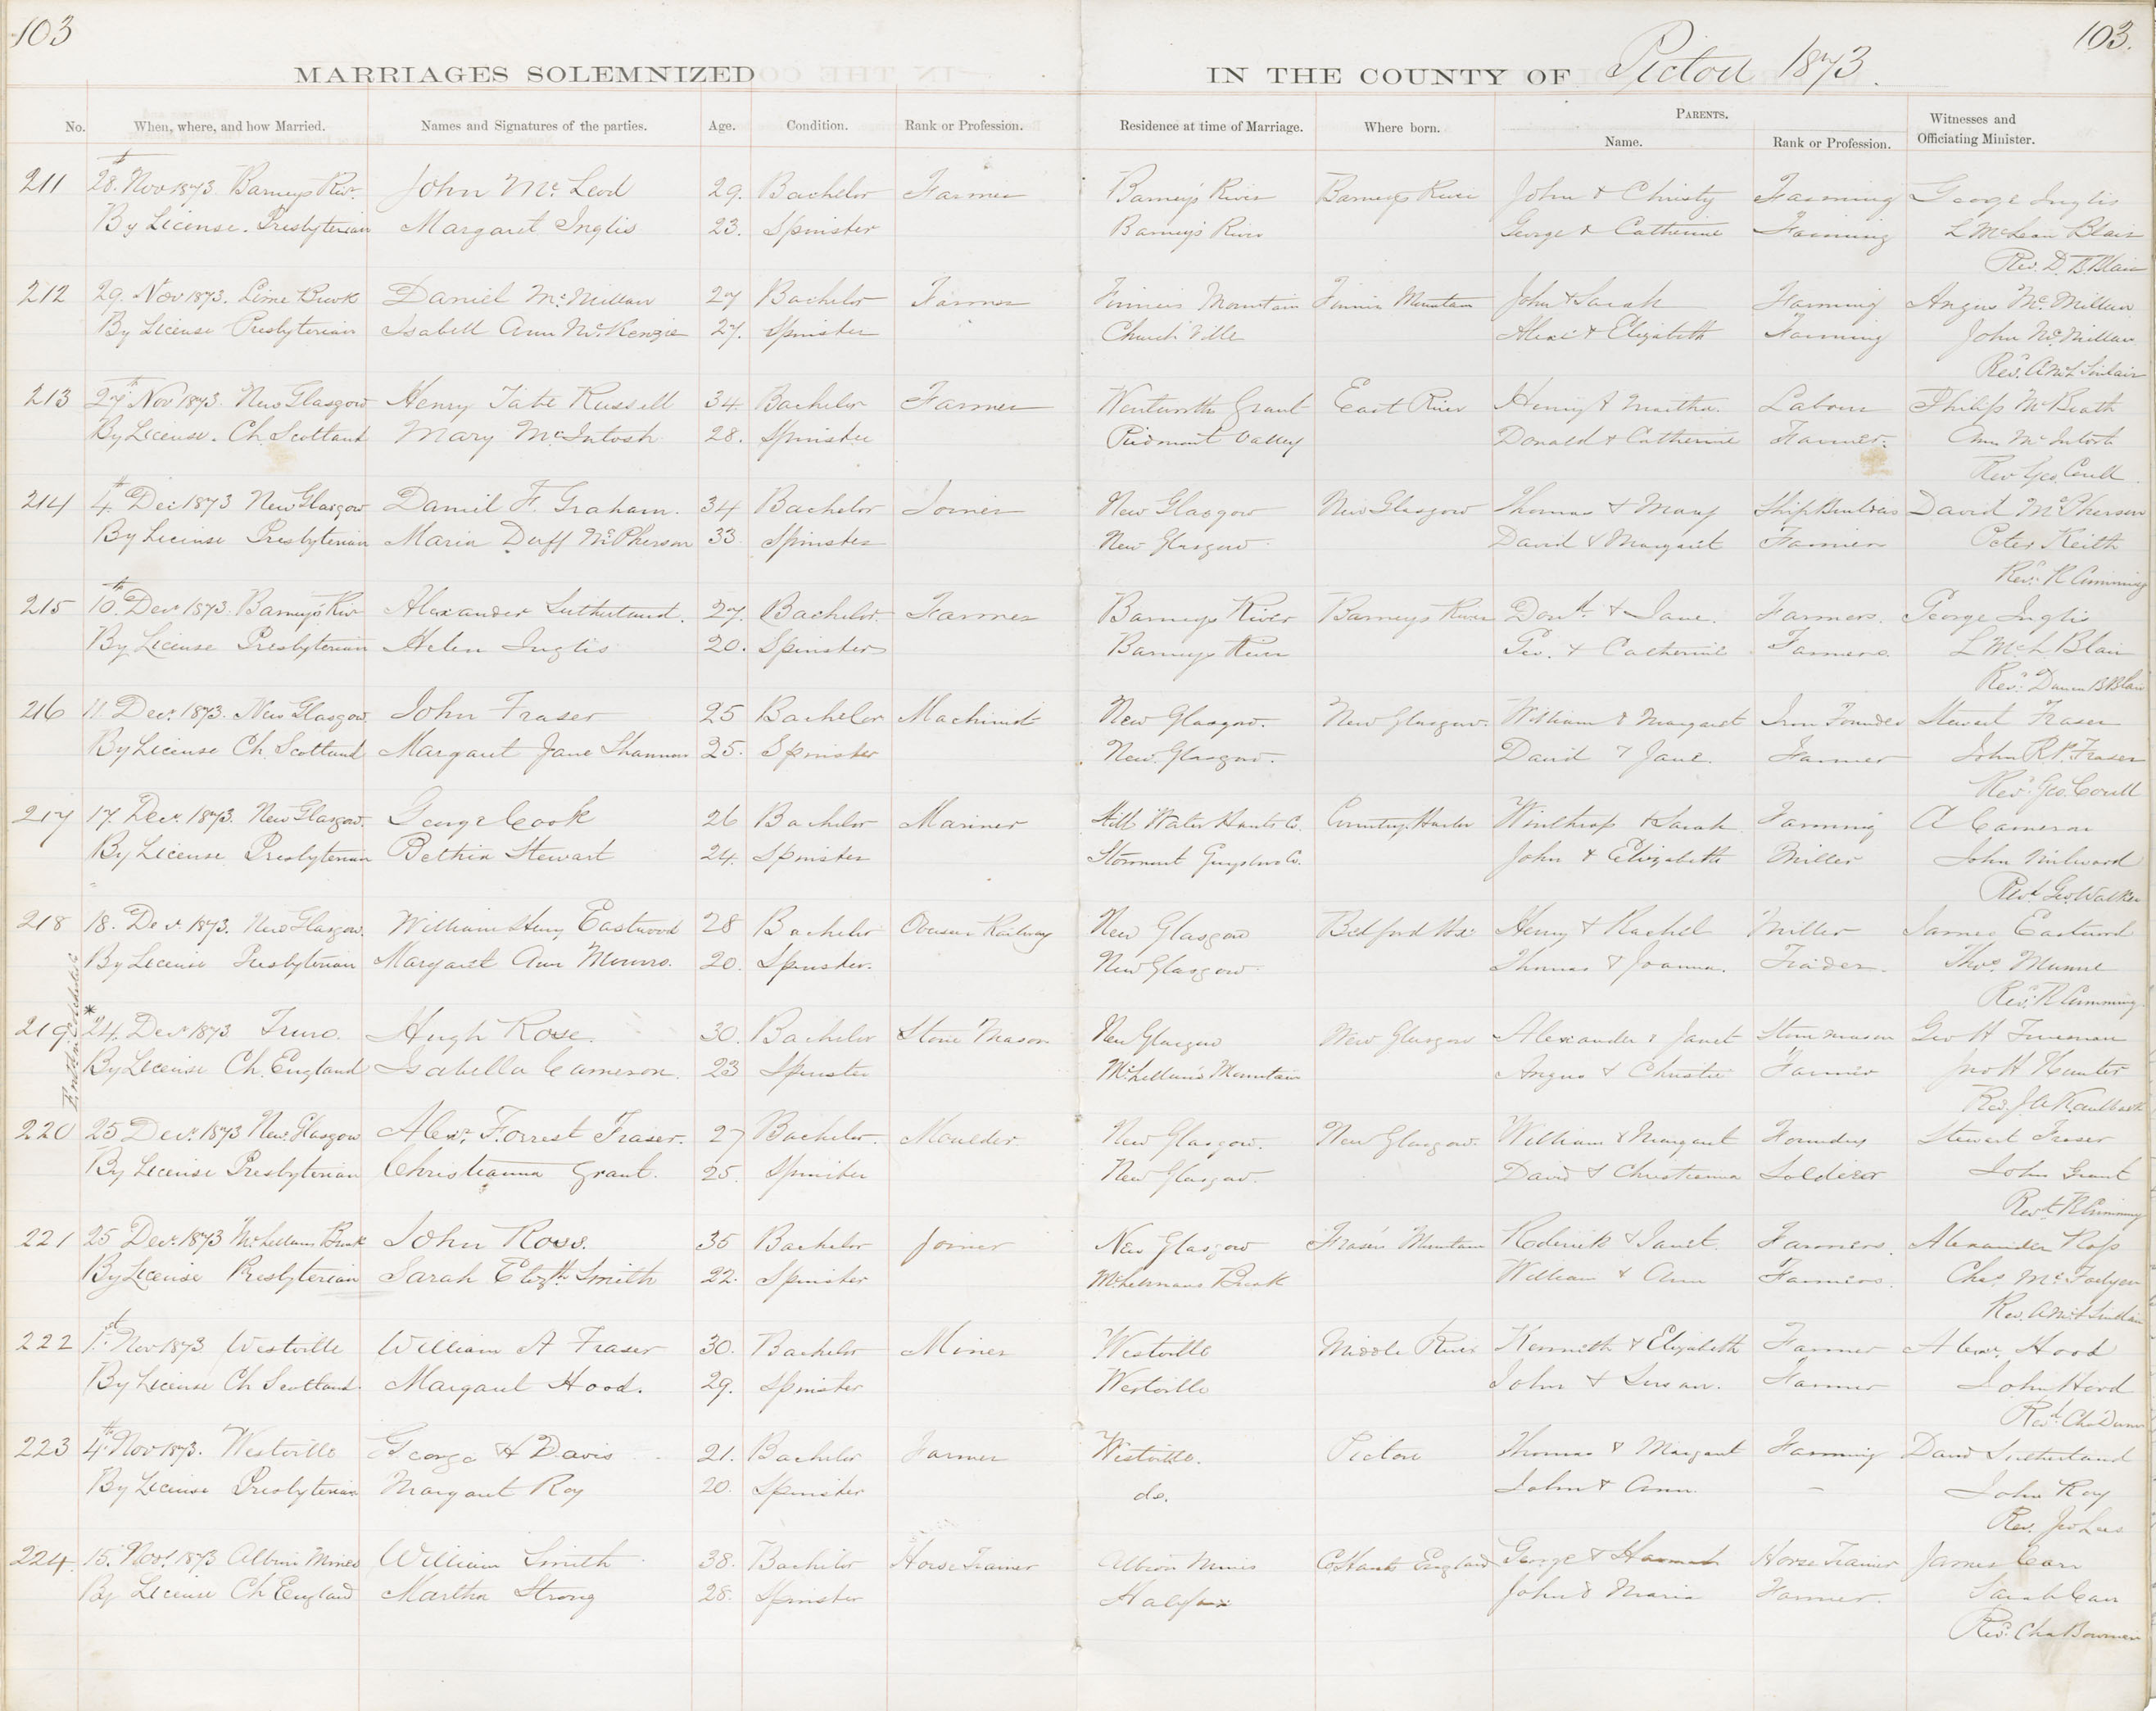 103
103.
MARRIAGES SOLEMNIZED IN THE COUNTY OF Pictou 1873.
No. When, where, and how Married. Names and Signatures of the parties. Age. Condition. Rank or Profession. Residence at time of Marriage. Where born. PARENTS. Name. Rank or Profession. Witnesses and Officiating Minister.
211 28th Nov 1873. Barneys Rivr. John McLeod 29. Bachelor Farmer Barney's River Barneys River John & Christy Farming George Inglis
By License. Presbyterian Margaret Inglis 23. Spinster Barney's River George & Catherine Farming L McLean Blair
Rev. D. B. Blair
212 29. Nov 1873. Lime Brook Daniel McMillan 27 Bachelor Farmer Mountain Mountain John & Sarah Farming Angus McMillan
By License Presbyterian Isabell Ann McKenzie 27. Spinster Church Ville Alexr & Elizabeth Farming John McMillan
Revd. A McL Sinclair
213 27th Nov 1873. New Glasgow Henry Tate Russell 34. Bachelor Farmer Wentworth Grant East River Henry & Martha. Labour Philip McBeath
By License. Ch. Scotland Mary McIntosh 28. Spinster Piedmont Valley Donald & Catherine Farmer. Ann McIntosh
Rev Geo. Coull
214 4th Dec 1873 New Glasgow Daniel F. Graham. 34 Bachelor Joiner New Glasgow New Glasgow Thomas & Mary Ship Builder David McPherson
By License Presbyterian Maria Duff McPherson 33 Spinster New Glasgow David & Margaret Farmer Peter Keith
Revd. R Cumming
215 10th Decr 1873. Barney's Rivr Alexander Sutherland. 27. Bachelor. Farmer Barneys River Barneys River Dond. & Jane. Farmers. George Inglis
By License Presbyterian Helen Inglis 20. Spinster Barneys River Geo. & Catherine Farmers. L McL Blair
Revd. B Blair
216 11 Decr. 1873. New Glasgow. John Fraser 25 Bachelor Machinist New Glasgow. New Glasgow. William & Margaret Iron Founder Stewart Fraser
By License Ch Scotland Margaret Jane Shannon 25. Spinster New Glasgow. David & Jane. Farmer John R. P. Fraser
Revd. Geo. Coull
217 17. Decr. 1873. New Glasgow. George Cook 26 Bachelor Mariner Still Water Hants Co. Country Harbor Winthrop & Sarah Farming A Cameron
By License Presbyterian Bethia Stewart 24. Spinster Stormont Guysboro Co. John & Elizabeth Miller John
Revd. Geo. Walker
218 18. Decr. 1873. New Glasgow. William Henry Eastwood 28 Bachelor Overseer Railway New Glasgow Bedford Hx. Henry & Rachel Miller James Eastwood
By License Presbyterian Margaret Ann Munro. 20. Spinster. New Glasgow. Thomas & Joanna. Trader. Thos. Munro
Revd. R Cumming.
219. *24. Decr 1873 Truro. Hugh Rose. 30. Bachelor Stone Mason New Glasgow New Glasgow Alexander & Janet Stone mason Geo H
By License Ch. England Isabella Cameron. 23 Spinster McLellan's Mountain Angus & Christie Farmer Jno H Hunter
Rev. J. A. Kaulbach
220 25 Decr. 1873 New Glasgow Alexr. Forrest Fraser. 27 Bachelor. Moulder New Glasgow. New Glasgow. William & Margaret Founders Stewart Fraser
By License Presbyterian Christianna Grant. 25. Spinster New Glasgow. David & Christianna Soldier John Grant
Revd. R Cumming
221 25 Decr. 1873 McLellans Brook John Ross. 35 Bachelor Joiner New Glasgow Frasers Mountain Roderick & Janet. Farmers. Alexander Ross
By License Presbyterian Sarah Elizth Smith 22. Spinster McLellans Brook William & Ann Farmers. Chas. McFadyen
Rev. A McL Sinclair
222 1st Nov 1873 Westville William A Fraser 30. Bachelor Miner Westville Middle River Kenneth & Elizabeth Farmer Alexr. Hood
By License Ch Scotland Margaret Hood. 29. Spinster Westville John & Susan. Farmer John Hood
Revd. Chas Dunn
223 4th Nov 1873. Westville George H Davis 21. Bachelor Farmer Westville. Pictou Thomas & Margaret Farming David Sutherland
By License Presbyterian Margaret Roy 20. Spinster do. John & Ann. – John Roy
Rev. Jno Lees
224. 15. Novr 1873 Albion Mines William Smith 38. Bachelor Horse Trainer Albion Mines Co Hants England George & Hannah Horse Trainer James Carr
By License Ch England Martha Strong 28. Spinster Halifax John & Maria Farmer. Sarah Carr
Revd. Chas Bowman